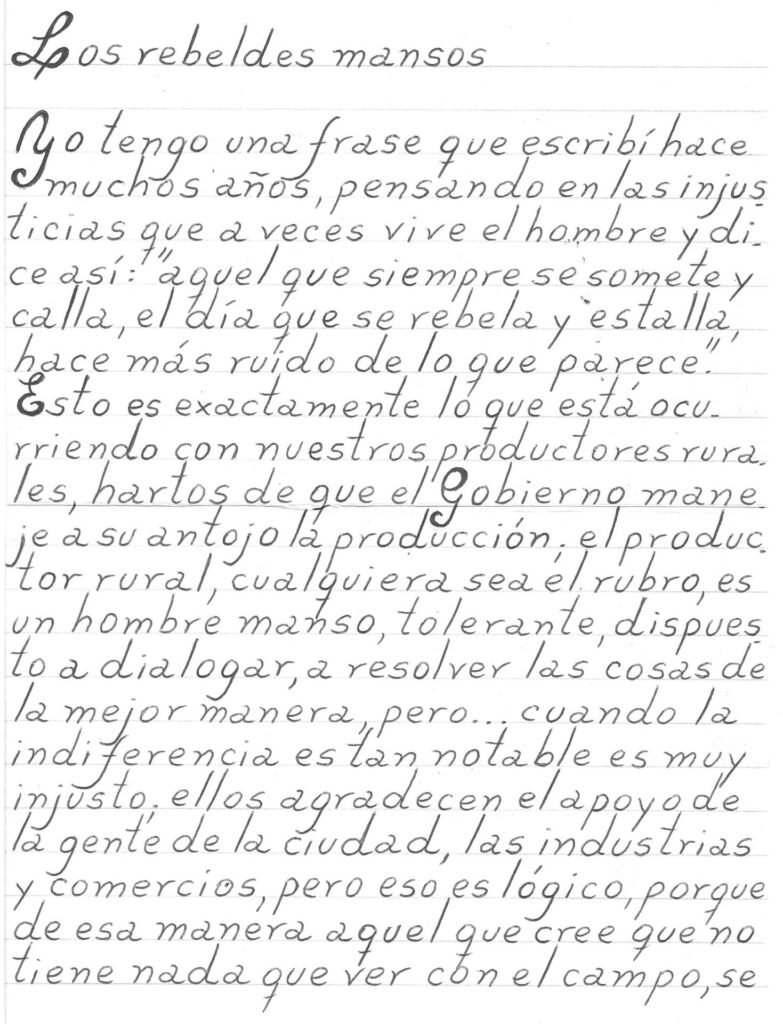 Los rebeldes mansos
Yo tengo una frase que escribí hace
muchos años, pensando en las injus_
ticias que a veces vive el hombre y di_
ce así: "aquel que siempre se somete y
calla, el día que se rebela y estalla,
hace más ruido de lo que parece".
Esto es exactamente lo que está ocu_
rriendo con nuestros productores rura_
les, hartos de que el Gobierno mane_
je a su antojo la producción; el produc_
tor rural, cualquiera sea el rubro, es
un hombre manso, tolerante, dispues_
to a dialogar, a resolver las cosas de
la mejor manera, pero... cuando la
indiferencia es tan notable es muy
injusto; ellos agradecen el apoyo de
la gente de la ciudad, las industrias
y comercios, pero eso es lógico, porque
de esa manera aquel que cree que no
tiene nada que ver con el campo, se